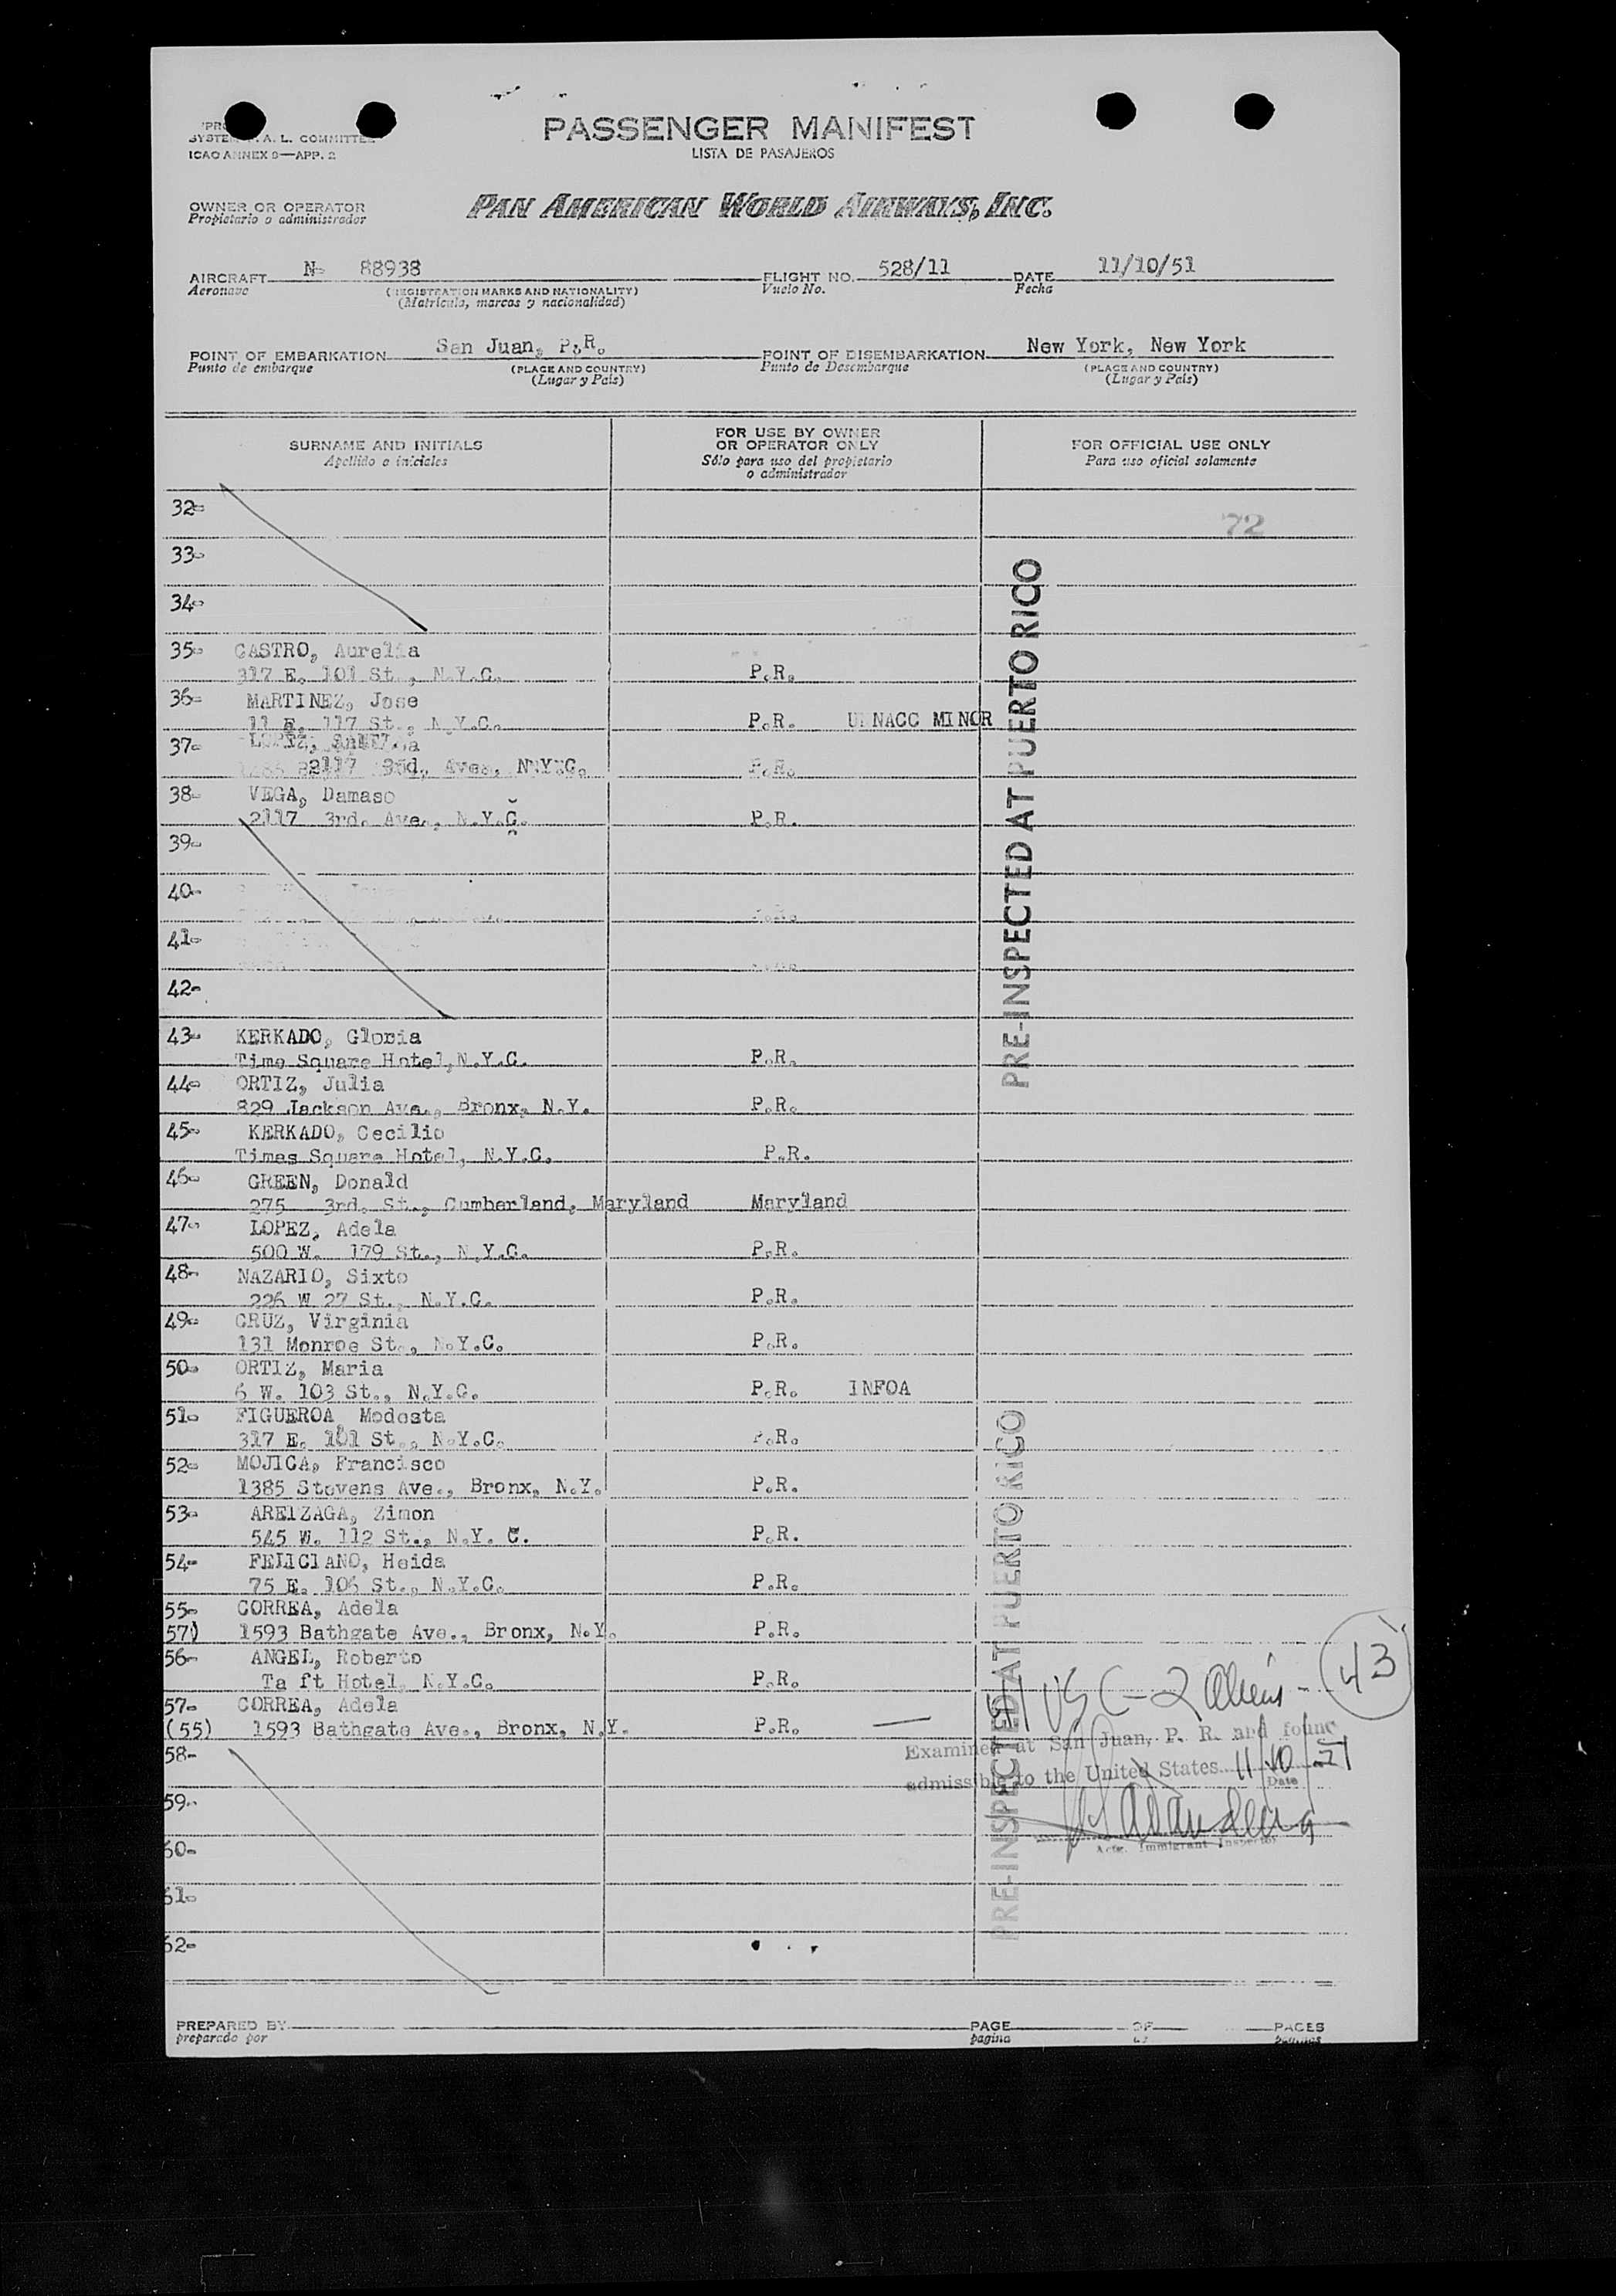 SYSTEM A. L. COMMITTEE
ICAO ANNEX 9—APP. 2
PASSENGER MANIFEST
LISTA DE PASAJEROS
OWNER OR OPERATOR
Propietario o administrador
PAN AMERICAN WORLD AIRWAYS, INC.
AIRCRAFT N- 88938 FLIGHT NO. 528/11 DATE 11/10/51
Aeronave (REGISTRATION MARKS AND NATIONALITY) Vuelo No. Fecha
(Matricula, marcas y nacionalidad)
POINT OF EMBARKATION San Juan, P.R. POINT OF DISEMBARKATION New York, New York
Punto de embarque (PLACE AND COUNTRY) Punto de Desembarque (PLACE AND COUNTRY)
(Lugar y País) (Lugar y País)
SURNAME AND INITIALS FOR USE BY OWNER OR OPERATOR ONLY FOR OFFICIAL USE ONLY
Apellido e iniciales Sólo para uso del propietario o administrador Para uso oficial solamente
32-
72
33-
34-
35- CASTRO, Aurelia
317 E. 101 St., N.Y.C. P.R.
36- MARTINEZ, Jose
11 E. 117 St., N.Y.C. P.R. UNNACC MINOR
37- LOPEZ,
2117 3rd. Ave., N.Y.C. P.R.
38- VEGA, Damaso
2117 3rd. Ave., N.Y.C. P.R.
39-
40-
41-
42-
43- KERKADO, Gloria
Time Square Hotel, N.Y.C. P.R.
44- ORTIZ, Julia
829 Jackson Ave., Bronx, N.Y. P.R.
45- KERKADO, Cecilio
Times Square Hotel, N.Y.C. P.R.
46- GREEN, Donald
275 3rd. St., Cumberland, Maryland Maryland
47- LOPEZ, Adela
500 W. 179 St., N.Y.C. P.R.
48- NAZARIO, Sixto
226 W 27 St., N.Y.C. P.R.
49- CRUZ, Virginia
131 Monroe St., N.Y.C. P.R.
50- ORTIZ, Maria
6 W. 103 St., N.Y.C. P.R. INFOA
51- FIGUEROA, Modesta
317 E. 101 St., N.Y.C. P.R.
52- MOJICA, Francisco
1385 Stevens Ave., Bronx, N.Y. P.R.
53- AREIZAGA, Zimon
545 W. 112 St., N.Y. C. P.R.
54- FELICIANO, Heida
75 E. 106 St., N.Y.C. P.R.
55- CORREA, Adela
57) 1593 Bathgate Ave., Bronx, N.Y. P.R.
56- ANGEL, Roberto
Ta ft Hotel, N.Y.C. P.R.
57- CORREA, Adela
(55) 1593 Bathgate Ave., Bronx, N.Y. P.R.
58-
59-
60-
61-
62-
PRE-INSPECTED AT PUERTO RICO
PRE-INSPECTED AT PUERTO RICO
41 USC - 2 Aliens - 43
Examined at San Juan, P. R. and found
admissible to the United States 11/10/51
Date
Actg. Immigrant Inspector
PREPARED BY PAGE OF PAGES
preparado por pagina